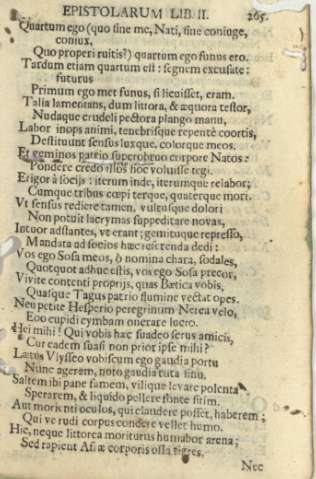 EPISTOLARUM LIB. II. 265.
Quartum ego (quo sine me, Nati, sine coniuge,
coniux,
Quo properi ruitis?) quartum ego funus ero.
Tardum etiam quartum est: segnem excusate:
futurus
Primum ego met funus, si licuisset, eram.
Talia lamentans, dum littora, & æquora testor,
Nudaque crudeli pectora plango manu,
Labor inops animi, tenebrisque repentè coortis,
Destituunt sensus luxque, colorque meos.
Et geminos patrio superobruo corpore Natos:
Pondere credo illos hoc voluisse tegi.
Erigor à socijs: iterum inde, iterumque relabor;
Cumque tribus cœpi terque, quaterque mori.
Vt sensus rediere tamen, vultusque dolori
Non potuit lacrymas suppeditare novas,
Intuor adstantes, vt erant; gemituque represso,
Mandata ad socios hæc reis renda dedi:
Vos ego Sosa meos, ô nomina chara, sodales,
Quotquot adhuc estis, vos ego Sosa precor,
Vivite contenti proprijs, quas Bætica vobis,
Quasque Tagus patrio flumine vectat opes.
Neu petite Hesperio peregrinum Nerea velo,
Eoo cupidi cymbam onerare lucro.
Hei mihi! Qui vobis hæc suadeo serus amicis,
Cur eadem suasi non prior ipse mihi?
Lætus Vlysseo vobiscum ego gaudia portu
Nunc agerem, noto gaudia tuta sinu.
Saltem ibi pane famem, vilique levare polenta
Sperarem, & liquido pellere fonte sitim.
Aut morienti oculos, qui claudere posset, haberem;
Qui ve rudi corpus condere vellet humo.
Hic, neque littorea moriturus humabor arena;
Sed rapient Asiæ corporis ossa tigres.
Nec